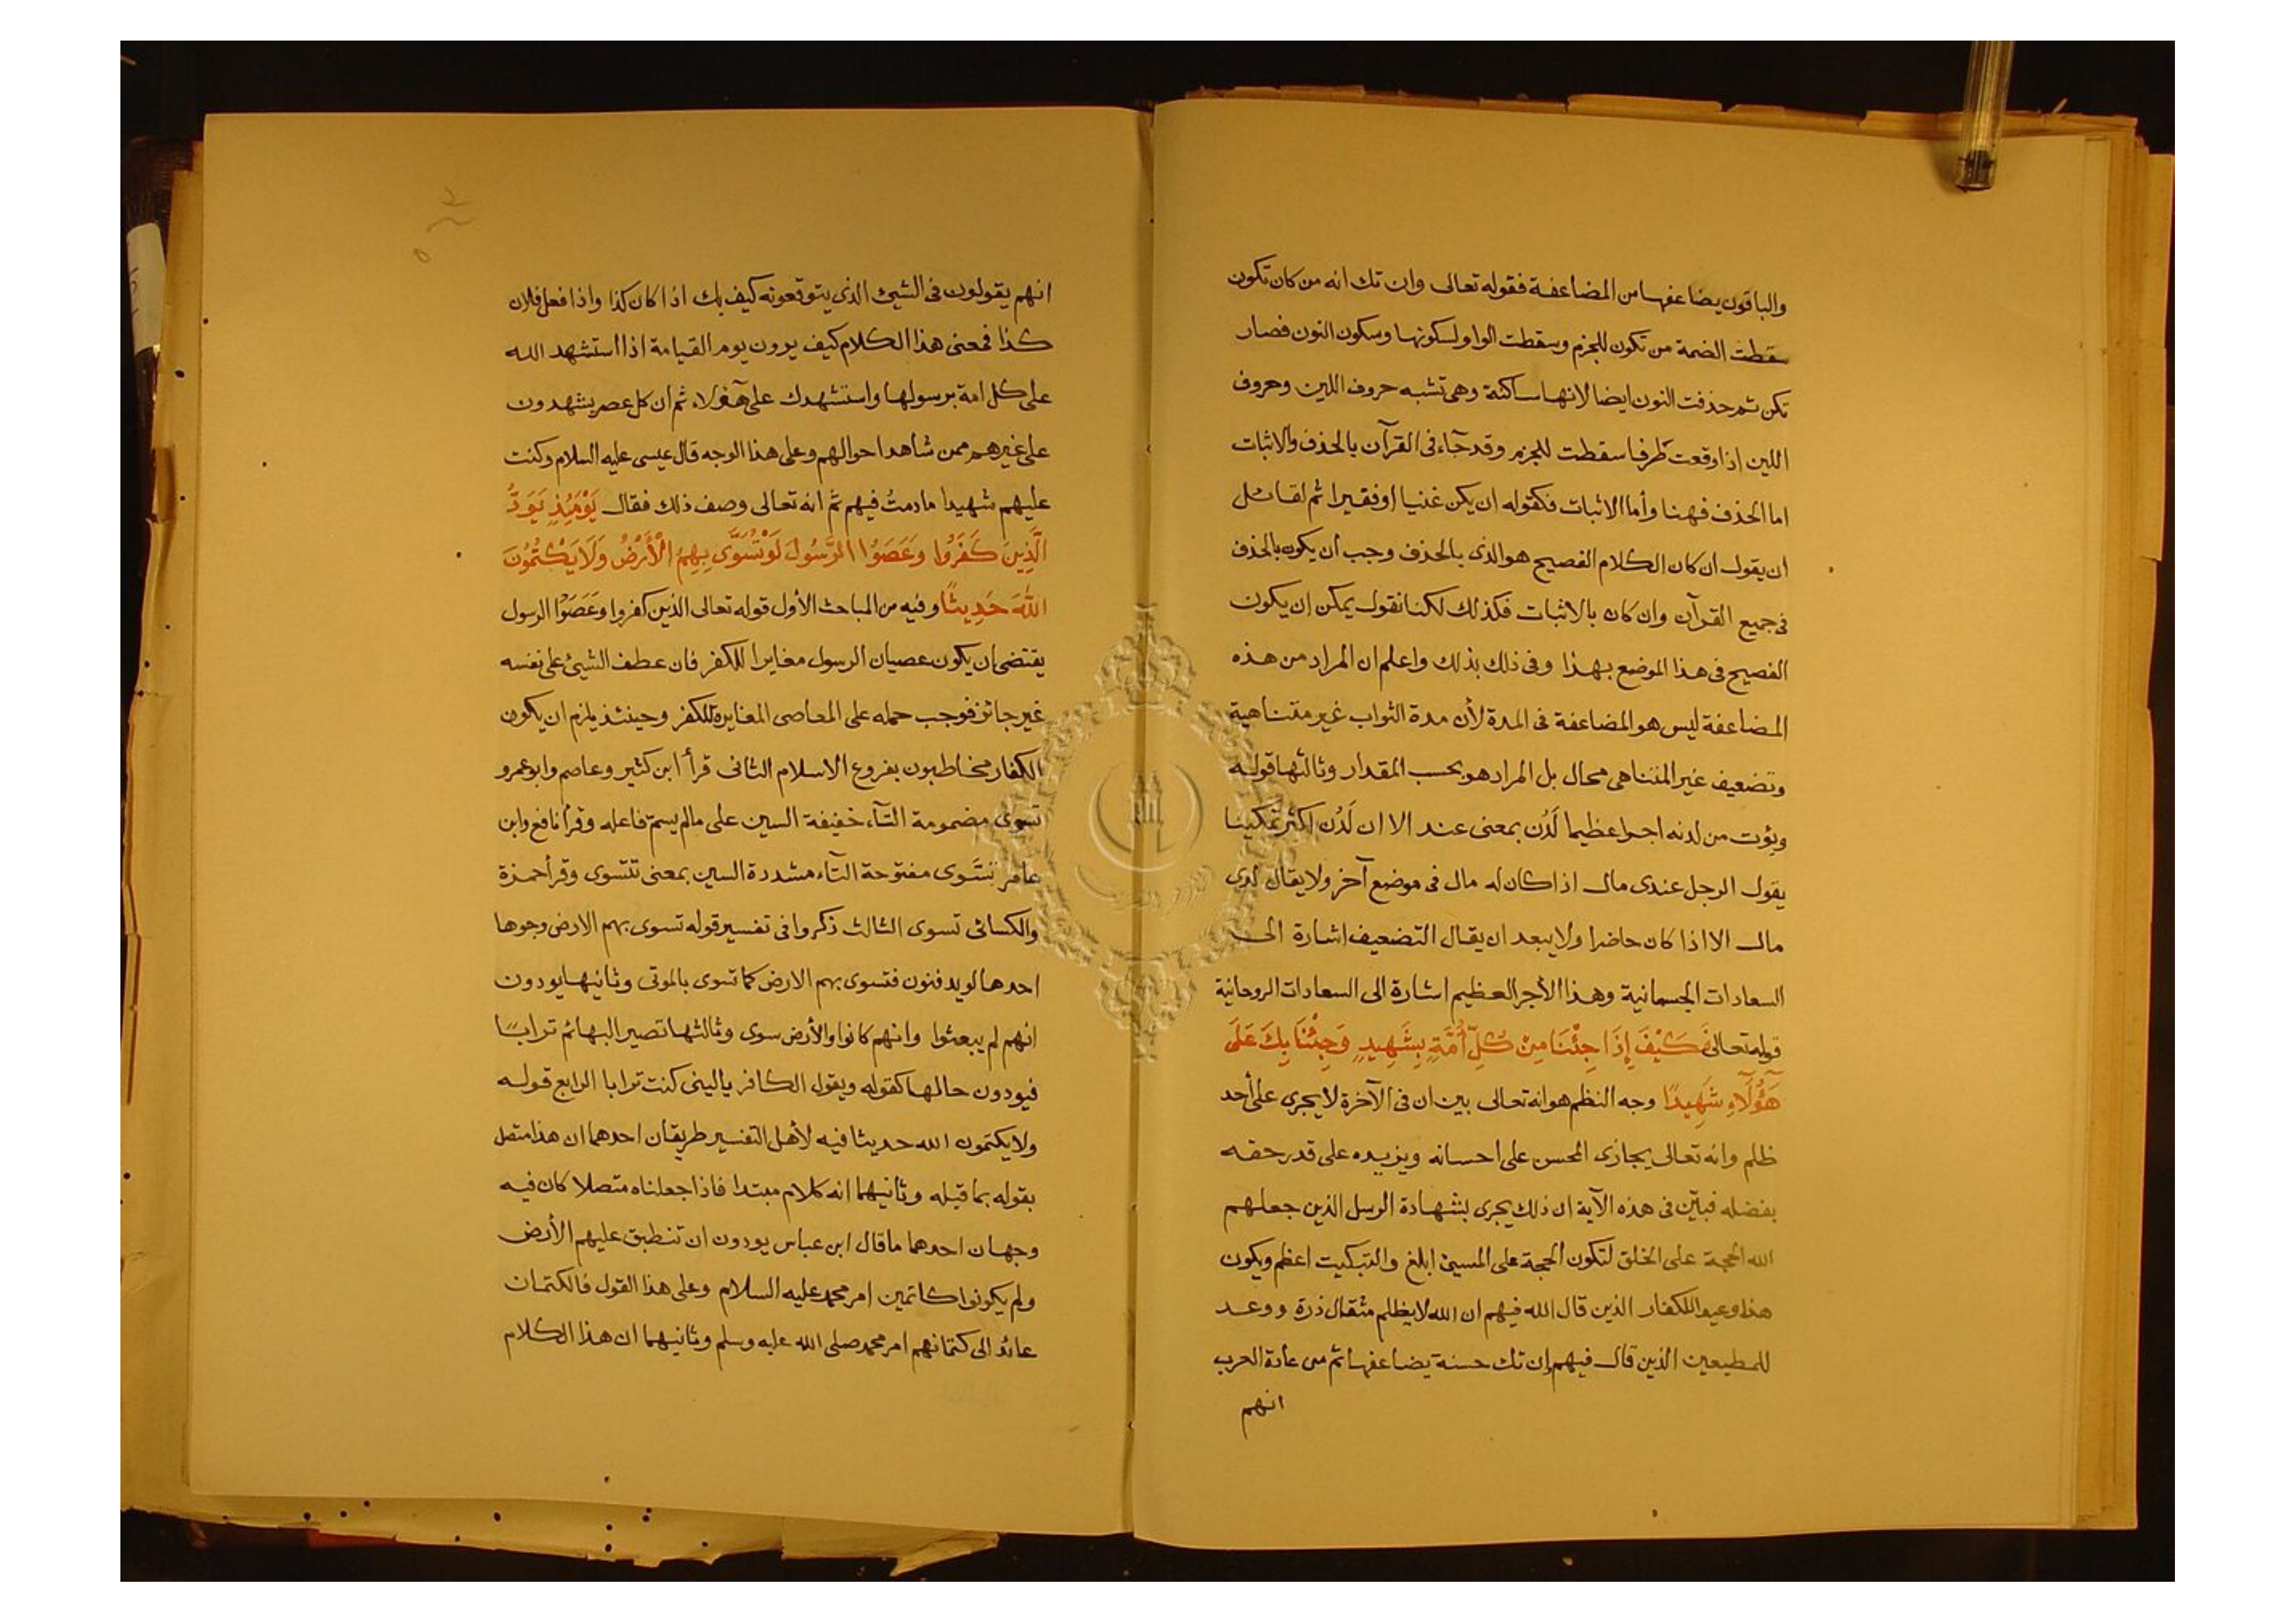 والباقون يضاعفها من المضاعفة فقوله تعالى وان تك انه من كان تكون
سقطت الضمة من تكون للجزم وسقطت الواو لسكونها وسكون النون فصار
تكن ثم حذفت النون ايضا لانها ساكنة وهى تشبه حروف اللين وحروف
اللين اذا وقعت طرفا سقطت للجزم وقد جآء فى القرآن بالحذف والاثبات
اما الحذف فهنا وأما الاثبات فكقوله ان يكن غنيا او فقيرا ثم لقائل
ان يقول ان كان الكلام الفصيح هو الذى بالحذف وجب ان يكون بالحذف
فى جميع القرآن وان كان بالاثبات فكذلك لكنا نقول يمكن ان يكون
الفصيح فى هذا الموضع بهذا وفى ذلك بذلك واعلم ان المراد من هذه
المضاعفة ليس هو المضاعفة فى المدة لأن مدة الثواب غير متناهية
وتضعيف غير المتناهى محال بل المراد هو بحسب المقدار وثالثها قوله
ويؤت من لدنه اجرا عظيما لَدُن بمعنى عند الا ان لَدُن اكثر تمكينا
يقول الرجل عندى مال اذا كان له مال فى موضع آخر ولا يقال لدى
مال الا اذا كان حاضرا ولا يبعد ان يقال التضعيف اشارة الى
السعادات الجسمانية وهذا الأجر العظيم اشارة الى السعادات الروحانية
قوله تعالى فَكَيْفَ إِذَا جِئْنَا مِنْ كُلِّ أُمَّةٍ بِشَهِيدٍ وَجِئْنَا بِكَ عَلَى
هَؤُلَآءِ شَهِيدًا وجه النظم هو انه تعالى بين ان فى الآخرة لا يجرى على أحد
ظلم وانه تعالى يجازى المحسن على احسانه ويزيده على قدر حقه
بفضله فبيّن فى هذه الآية ان ذلك يجرى بشهادة الرسل الذين جعلهم
الله الحجة على الخلق لتكون الحجة على المسيئ ابلغ والتبكيت اعظم ويكون
هذا وعيدا للكفار الذين قال الله فيهم ان الله لا يظلم مثقال ذرة ووعد
للمطيعين الذين قال فيهم إن تك حسنة يضاعفها ثم من عادة العرب
انهم
انهم يقولون فى الشيئ الذى يتوقعونه كيف بك اذا كان كذا واذا فعل فلان
كذا فمعنى هذا الكلام كيف يرون يوم القيامة اذا استشهد الله
على كل امة برسولها واستشهدك على هؤلاء ثم ان كل عصر يشهدون
على غيرهم ممن شاهد احوالهم وعلى هذا الوجه قال عيسى عليه السلام وكنت
عليهم شهيدا ما دمتُ فيهم ثم انه تعالى وصف ذلك فقال يَوْمَئِذٍ يَوَدُّ
الَّذِينَ كَفَرُوا وَعَصَوُا الرَّسُولَ لَوْ تُسَوَّى بِهِمُ الْأَرْضُ وَلَا يَكْتُمُونَ
اللَّهَ حَدِيثًا وفيه من المباحث الأول قوله تعالى الذين كفروا وعَصَوُا الرسول
يقتضى ان يكون عصيان الرسول مغايرا للكفر فان عطف الشيئ على نفسه
غير جائز فوجب حمله على المعاصى المغايرة للكفر وحينئذ يلزم ان يكون
الكفار مخاطبون بفروع الاسلام الثانى قرأ ابن كثير وعاصم وابوعمرو
تسوى مضمومة التآء خفيفة السين على مالم يسمّ فاعله وقرأ نافع وابن
عامر تسَّوى مفتوحة التآء مشددة السين بمعنى تتسوى وقرأ حمزة
والكسائى تسوى الثالث ذكروا فى تفسير قوله تسوى بهم الارض وجوها
احدها لو يدفنون فتسوى بهم الارض كما تسوى بالموتى وثانيها يودون
انهم لم يبعثوا وانهم كانوا والأرض سوى وثالثها تصير البهائم ترابًا
فيودون حالها كقوله ويقول الكافر ياليتنى كنت ترابا الرابع قوله
ولا يكتمون الله حديثا فيه لأهل التفسير طريقان احدهما ان هذا متصل
بقوله بما قبله وثانيهما انه كلام مبتدا فاذا جعلناه متصلا كان فيه
وجهان احدهما ما قال ابن عباس يودون ان تنطبق عليهم الأرض
ولم يكونوا كاتمين امر محمد عليه السلام وعلى هذا القول فالكتمان
عائد الى كتمانهم امر محمد صلى الله عليه وسلم وثانيهما ان هذا الكلام